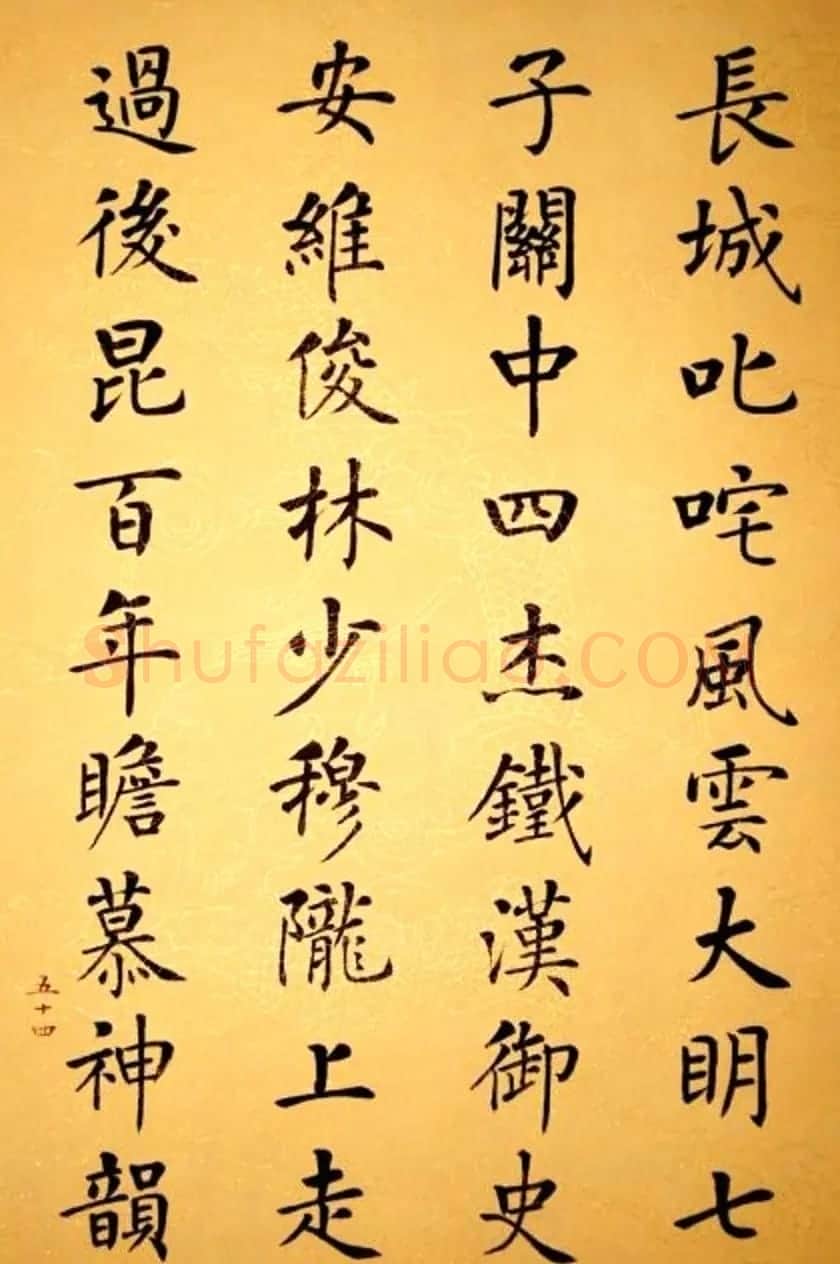 長城叱咤風雲大明七
子關中四杰鐵漢御史
安維俊林少穆隴上走
過後昆百年瞻慕神韻
五十四
Shufaziliao.com